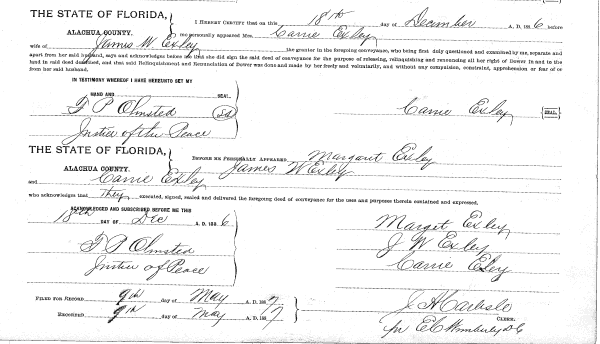 THE STATE OF FLORIDA,
ALACHUA COUNTY.
I HEREBY CERTIFY that on this 18th day of December A. D. 188 6 before
me personally appeared Mrs. Carrie Exley
wife of James W Exley the grantor in the foregoing conveyance, who being first duly questioned and examined by me, separate and
apart from her said husband, says and acknowledges before me that she did sign the said deed of conveyance for the purpose of releasing, relinquishing and renouncing all her right of Dower in and to the
land in said deed described, and that said Relinquishment and Renunciation of Dower was done and made by her freely and voluntarily, and without any compulsion, constraint, apprehension or fear of or
from her said husband.
IN TESTIMONY WHEREOF I HAVE HEREUNTO SET MY
HAND AND SEAL.
T P Olmsted
Justice of the Peace
Carrie Exley SEAL.
THE STATE OF FLORIDA,
ALACHUA COUNTY.
BEFORE ME PERSONALLY APPEARED Margaret Exley
James W Exley
and Carrie Exley
who acknowledges that They executed, signed, sealed and delivered the foregoing deed of conveyance for the uses and purposes therein contained and expressed.
ACKNOWLEDGED AND SUBSCRIBED BEFORE ME THIS
18th DAY OF Dec A. D. 188 6
T P Olmsted
Justice of Peace
Marget Exley
J W Exley
Carrie Exley
FILED FOR RECORD 9th day of May A. D. 188 7
RECORDED 9th day of May A. D. 188 7
J A Carlisle
CLERK.
pr E C Wimberly D C